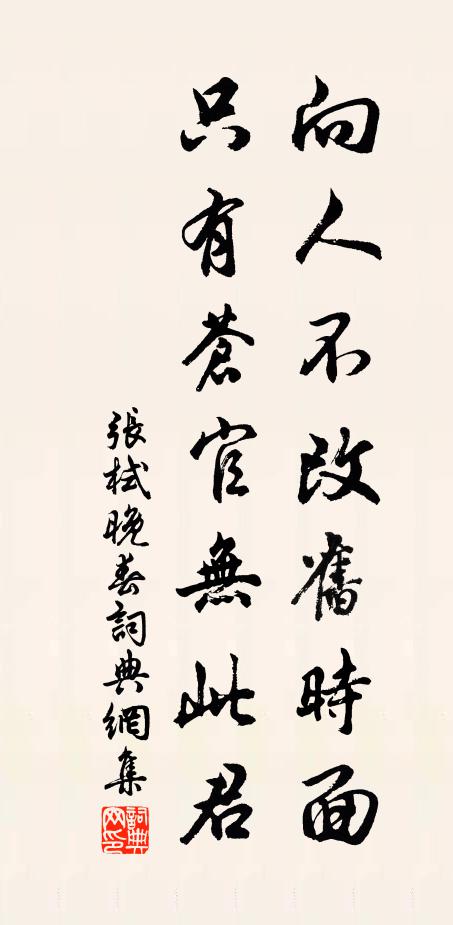 向人不改舊時面
只有蒼官無此君
張栻晚春詞典網集
詞典网印